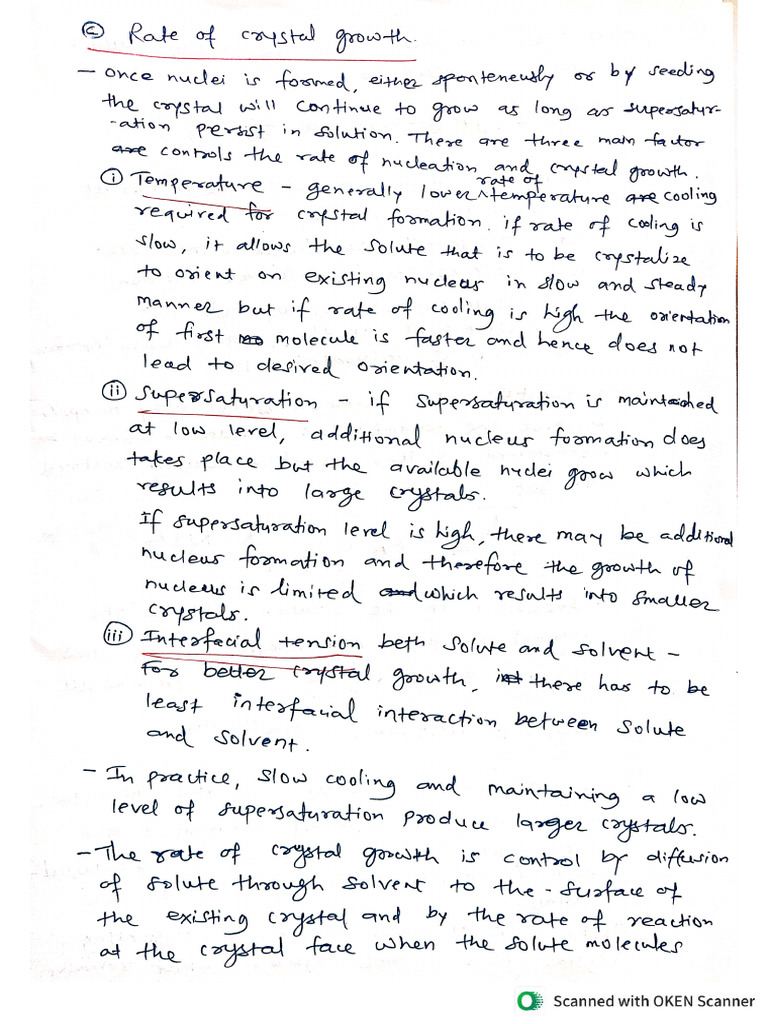 ⓒ Rate of crystal growth.
- Once nuclei is formed, either sponteneusly or by seeding
the crystal will continue to grow as long as supersatur-
-ation persist in solution. There are three main factor
are controls the rate of nucleation and crystal growth.
ⓘ Temperature - generally lower rate of temperature are cooling
required for crystal formation. if rate of cooling is
slow, it allows the solute that is to be crystalize
to orient on existing nucleus in slow and steady
manner but if rate of cooling is high the orientation
of first molecule is faster and hence does not
lead to desired orientation.
(ii) Supersaturation - if supersaturation is maintained
at low level, additional nucleus formation does
takes place but the available nuclei grow which
results into large crystals.
If supersaturation level is high, there may be additional
nucleus formation and therefore the growth of
nucleus is limited and which results into smaller
crystals.
(iii) Interfacial tension beth solute and solvent -
For better crystal growth, there has to be
least interfacial interaction between solute
and solvent.
- In practice, slow cooling and maintaining a low
level of supersaturation produce larger crystals.
- The rate of crystal growth is control by diffusion
of solute through solvent to the - surface of
the existing crystal and by the rate of reaction
at the crystal face when the solute molecules
Scanned with OKEN Scanner